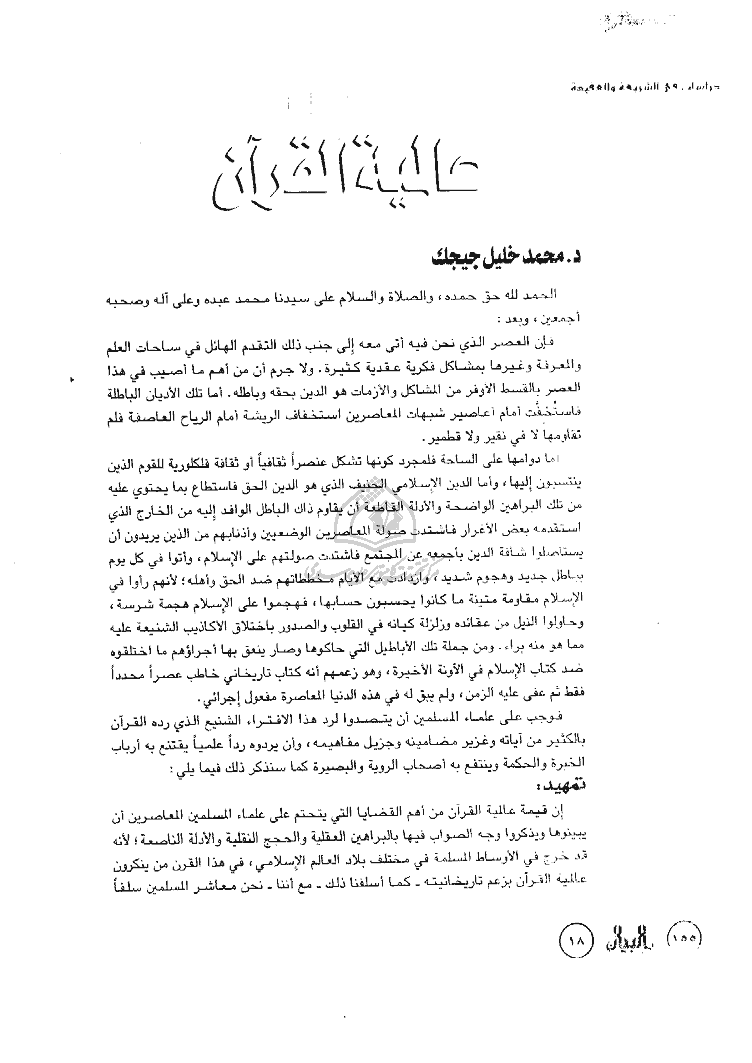 دراسات في الشريعة والعقيدة
عالمية القرآن
د. محمد خليل جيجك
الحمد لله حق حمده، والصلاة والسلام على سيدنا محمد عبده وعلى آله وصحبه
أجمعين، وبعد:
فإن العصر الذي نحن فيه أتى معه إلى جنب ذلك التقدم الهائل في ساحات العلم
والمعرفة وغيرها بمشاكل فكرية عقدية كثيرة. ولا جرم أن من أهم ما أصيب في هذا
العصر بالقسط الأوفر من المشاكل والأزمات هو الدين بحقه وباطله. أما تلك الأديان الباطلة
فاستُخفَّت أمام أعاصير شبهات المعاصرين استخفاف الريشة أمام الرياح العاصفة فلم
تقاومها لا في نقير ولا قطمير.
أما دوامها على الساحة فلمجرد كونها تشكل عنصراً ثقافياً أو ثقافة فلكلورية للقوم الذين
ينتسبون إليها، وأما الدين الإسلامي الحنيف الذي هو الدين الحق فاستطاع بما يحتوي عليه
من تلك البراهين الواضحة والأدلة القاطعة أن يقاوم ذاك الباطل الوافد إليه من الخارج الذي
استقدمه بعض الأغرار فاشتدت صولة المعاصرين الوضعيين وأذنابهم من الذين يريدون أن
يستاصلوا شافة الدين بأجمعه عن المجتمع فاشتدت صولتهم على الإسلام، وأتوا في كل يوم
بباطل جديد وهجوم شديد، وازدادت مع الأيام مخططاتهم ضد الحق وأهله؛ لأنهم رأوا في
الإسلام مقاومة متينة ما كانوا يحسبون حسابها، فهجموا على الإسلام هجمة شرسة،
وحاولوا النيل من عقائده وزلزلة كيانه في القلوب والصدور باختلاق الأكاذيب الشنيعة عليه
مما هو منه براء. ومن جملة تلك الأباطيل التي حاكوها وصار ينعق بها أجراؤهم ما اختلقوه
ضد كتاب الإسلام في الآونة الأخيرة، وهو زعمهم أنه كتاب تاريخاني خاطب عصراً محدداً
فقط ثم عفى عليه الزمن، ولم يبق له في هذه الدنيا المعاصرة مفعول إجرائي.
فوجب على علماء المسلمين أن يتصدوا لرد هذا الافتراء الشنيع الذي رده القرآن
بالكثير من آياته وغزير مضامينه وجزيل مفاهيمه، وان يردوه رداً علمياً يقتنع به أرباب
الخبرة والحكمة وينتفع به أصحاب الروية والبصيرة كما سنذكر ذلك فيما يلي:
تمهيد:
إن قيمة عالمية القرآن من أهم القضايا التي يتحتم على علماء المسلمين المعاصرين أن
يبينوها ويذكروا وجه الصواب فيها بالبراهين العقلية والحجج النقلية والأدلة الناصعة؛ لأنه
قد خرج في الأوساط المسلمة في مختلف بلاد العالم الإسلامي، في هذا القرن من ينكرون
عالمية القرآن بزعم تاريخانيته ـ كما أسلفنا ذلك ـ مع أننا ـ نحن معاشر المسلمين سلفاً
١٥٥ البيان ١٨